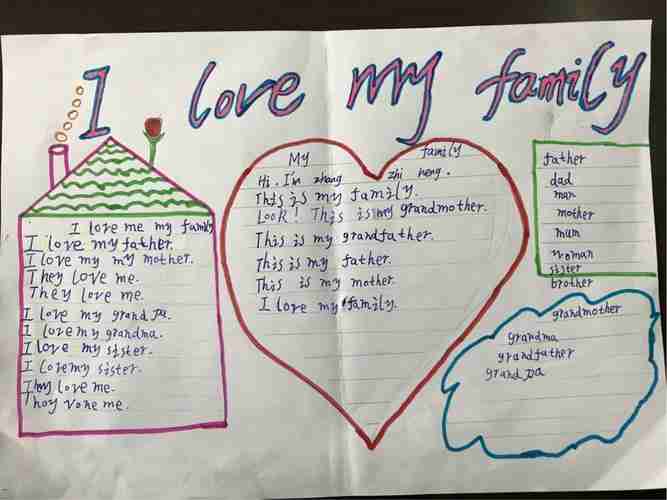 I love my family
I love me my family
I love my father.
I love my my mother.
They love me.
They love me.
I love my grand pa.
I love my grandma.
I love my sister.
I love my sister.
They love me.
Thoy vone me.
My family
Hi. I'm zhang zhi heng.
This is my family.
Look! This is my grandmother.
This is my grandfather.
This is my father.
This is my mother.
I love my family.
father
dad
man
mother
mum
woman
sister
brother
grandmother
grandma
grandfather
grand pa